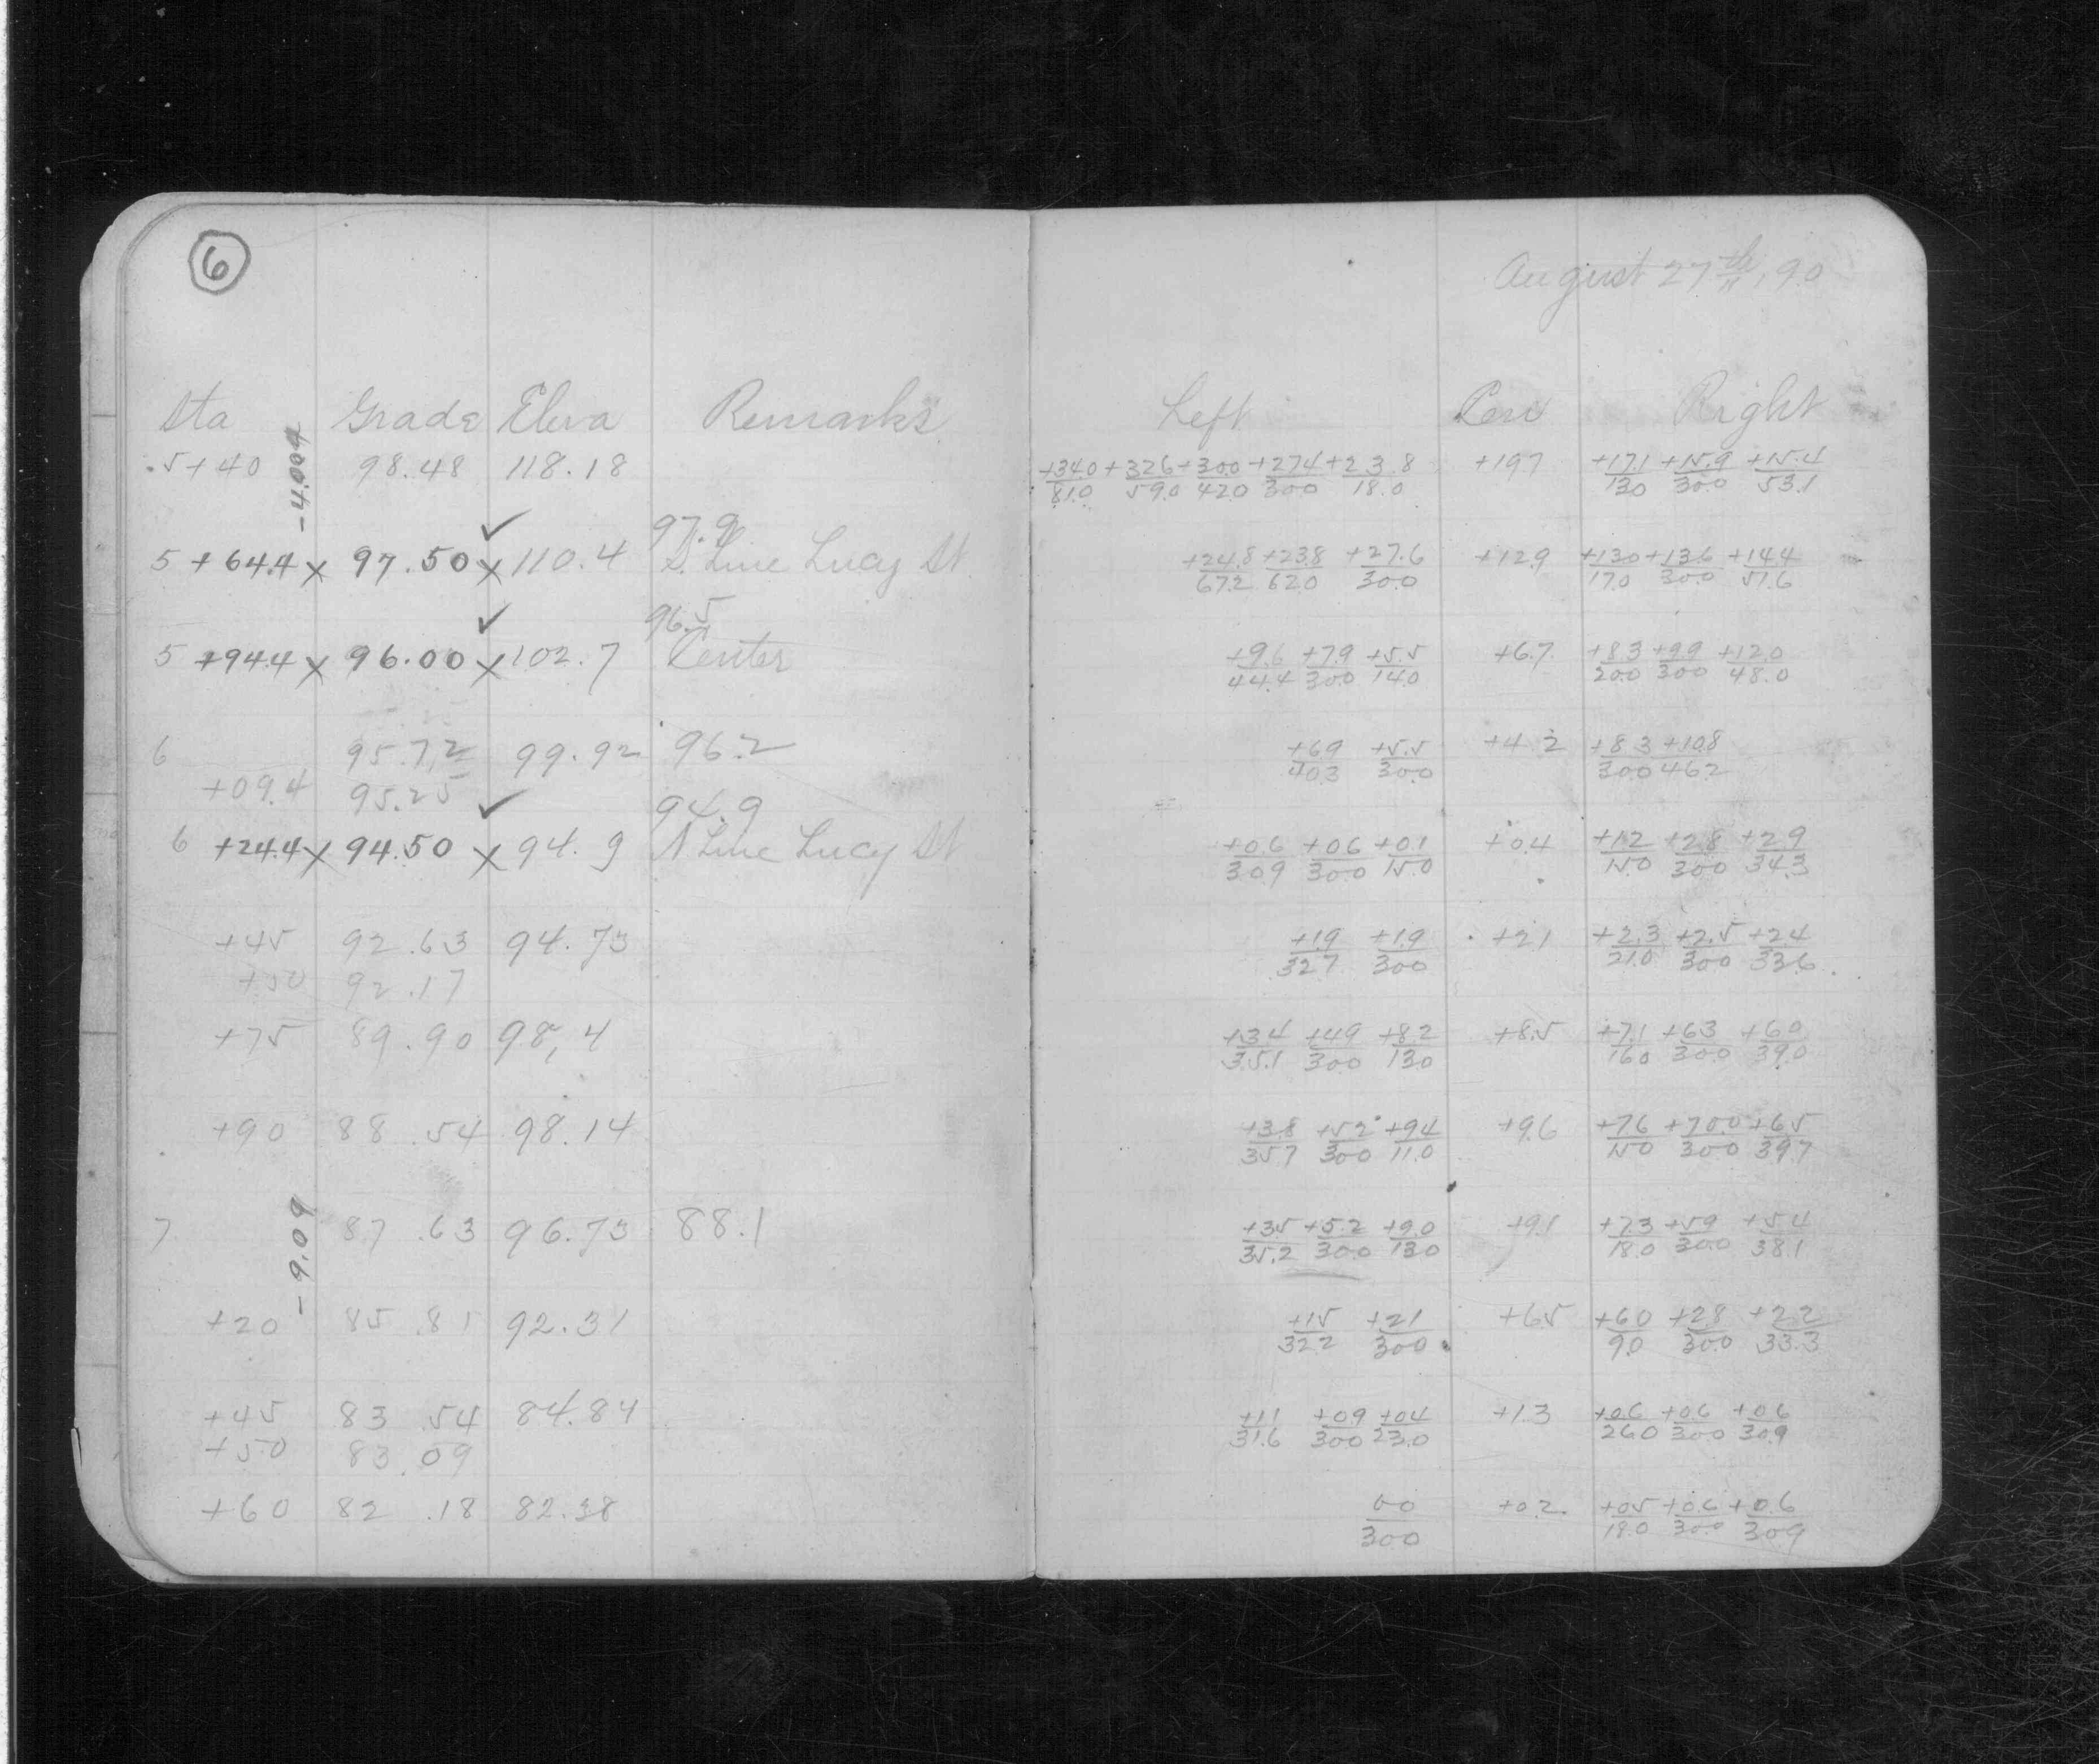 6
August 27th, 90
Sta Grade Eleva Remarks Left Cen Right
-4.004
5+40 98.48 118.18 +34.0/81.0 +32.6/59.0 +30.0/42.0 +27.4/30.0 +23.8/18.0 +19.7 +17.1/13.0 +15.9/30.0 +15.4/53.1
✓ 97.9
5 +64.4 x 97.50 x 110.4 S. Line Lucy St +24.8/67.2 +23.8/62.0 +27.6/30.0 +12.9 +13.0/17.0 +13.6/30.0 +14.4/51.6
✓ 96.5
5 +94.4 x 96.00 x 102.7 Center +9.6/44.4 +7.9/30.0 +5.5/14.0 +6.7 +8.3/20.0 +9.9/30.0 +12.0/48.0
6 95.72 99.92 96.2 +6.9/40.3 +5.5/30.0 +4.2 +8.3/30.0 +10.8/46.2
+09.4 95.25 ✓ 94.9
6 +24.4 x 94.50 x 94.9 N Line Lucy St +0.6/30.9 +0.6/30.0 +0.1/15.0 +0.4 +1.2/15.0 +2.8/30.0 +2.9/34.3
+45 92.63 94.73 +1.9/32.7 +1.9/30.0 +2.1 +2.3/21.0 +2.5/30.0 +2.4/33.6
+50 92.17
+75 89.90 98,4 +3.4/35.1 +4.9/30.0 +8.2/13.0 +8.5 +7.1/16.0 +6.3/30.0 +6.0/39.0
+90 88.54 98.14 +3.8/35.7 +5.2/30.0 +9.4/11.0 +9.6 +7.6/15.0 +7.00/30.0 +6.5/39.7
-9.09
7 87.63 96.73 88.1 +3.5/35.2 +5.2/30.0 +9.0/13.0 +9.1 +7.3/18.0 +5.9/30.0 +5.4/38.1
+20 85.81 92.31 +1.5/32.2 +2.1/30.0 +6.5 +6.0/9.0 +2.8/30.0 +2.2/33.3
+45 83.54 84.84 +1.1/31.6 +0.9/30.0 +0.4/23.0 +1.3 +0.6/26.0 +0.6/30.0 +0.6/30.9
+50 83.09
+60 82.18 82.38 0.0/30.0 +0.2 +0.5/18.0 +0.6/30.0 +0.6/30.9